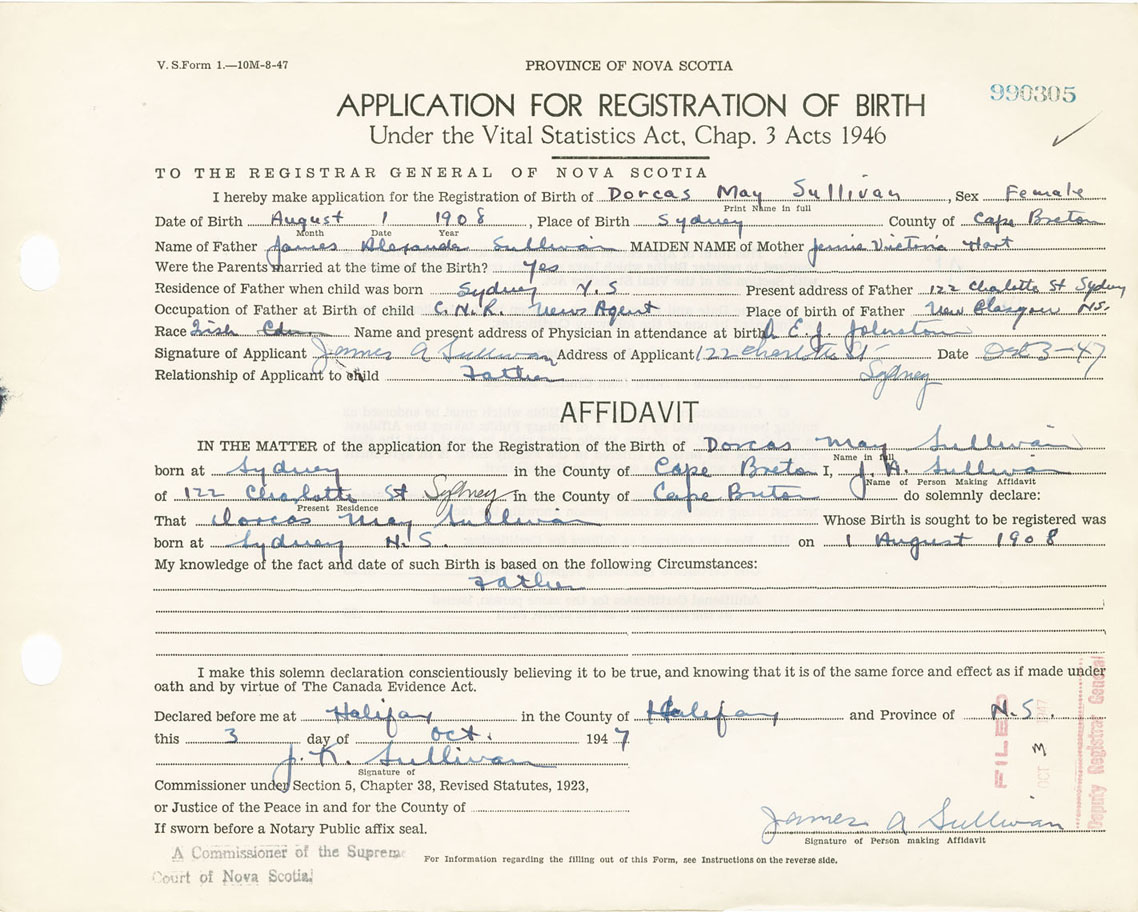 V. S.Form 1.—10M-8-47
PROVINCE OF NOVA SCOTIA
990305
APPLICATION FOR REGISTRATION OF BIRTH
Under the Vital Statistics Act, Chap. 3 Acts 1946
TO THE REGISTRAR GENERAL OF NOVA SCOTIA
I hereby make application for the Registration of Birth of Dorcas May Sullivan, Sex Female
Print Name in full
Date of Birth August 1 1908, Place of Birth Sydney County of Cape Breton
Month Date Year
Name of Father James Alexander Sullivan MAIDEN NAME of Mother Jennie Victoria Hart
Were the Parents married at the time of the Birth? Yes
Residence of Father when child was born Sydney N.S Present address of Father 122 Charlotte St Sydney
Occupation of Father at Birth of child C.N.R. News Agent Place of birth of Father New Glasgow N.S.
Race Irish Cdn Name and present address of Physician in attendance at birth E.J. Johnston
Signature of Applicant James A Sullivan Address of Applicant 122 Charlotte St Date Oct 3-47
Relationship of Applicant to child Father Sydney
AFFIDAVIT
IN THE MATTER of the application for the Registration of the Birth of Dorcas May Sullivan
Name in full
born at Sydney in the County of Cape Breton I, J. A. Sullivan
Name of Person Making Affidavit
of 122 Charlotte St Sydney in the County of Cape Breton do solemnly declare:
Present Residence
That Dorcas May Sullivan Whose Birth is sought to be registered was
born at Sydney N.S. on 1 August 1908
My knowledge of the fact and date of such Birth is based on the following Circumstances:
Father
I make this solemn declaration conscientiously believing it to be true, and knowing that it is of the same force and effect as if made under
oath and by virtue of The Canada Evidence Act.
Declared before me at Halifax in the County of Halifax and Province of N.S.
this 3 day of Oct. 1947
J. K. Sullivan
Signature of
Commissioner under Section 5, Chapter 38, Revised Statutes, 1923,
or Justice of the Peace in and for the County of
If sworn before a Notary Public affix seal.
A Commissioner of the Supreme
Court of Nova Scotia
FILED
OCT 3 1947
Deputy Registrar General
James A Sullivan
Signature of Person making Affidavit
For Information regarding the filling out of this Form, see Instructions on the reverse side.